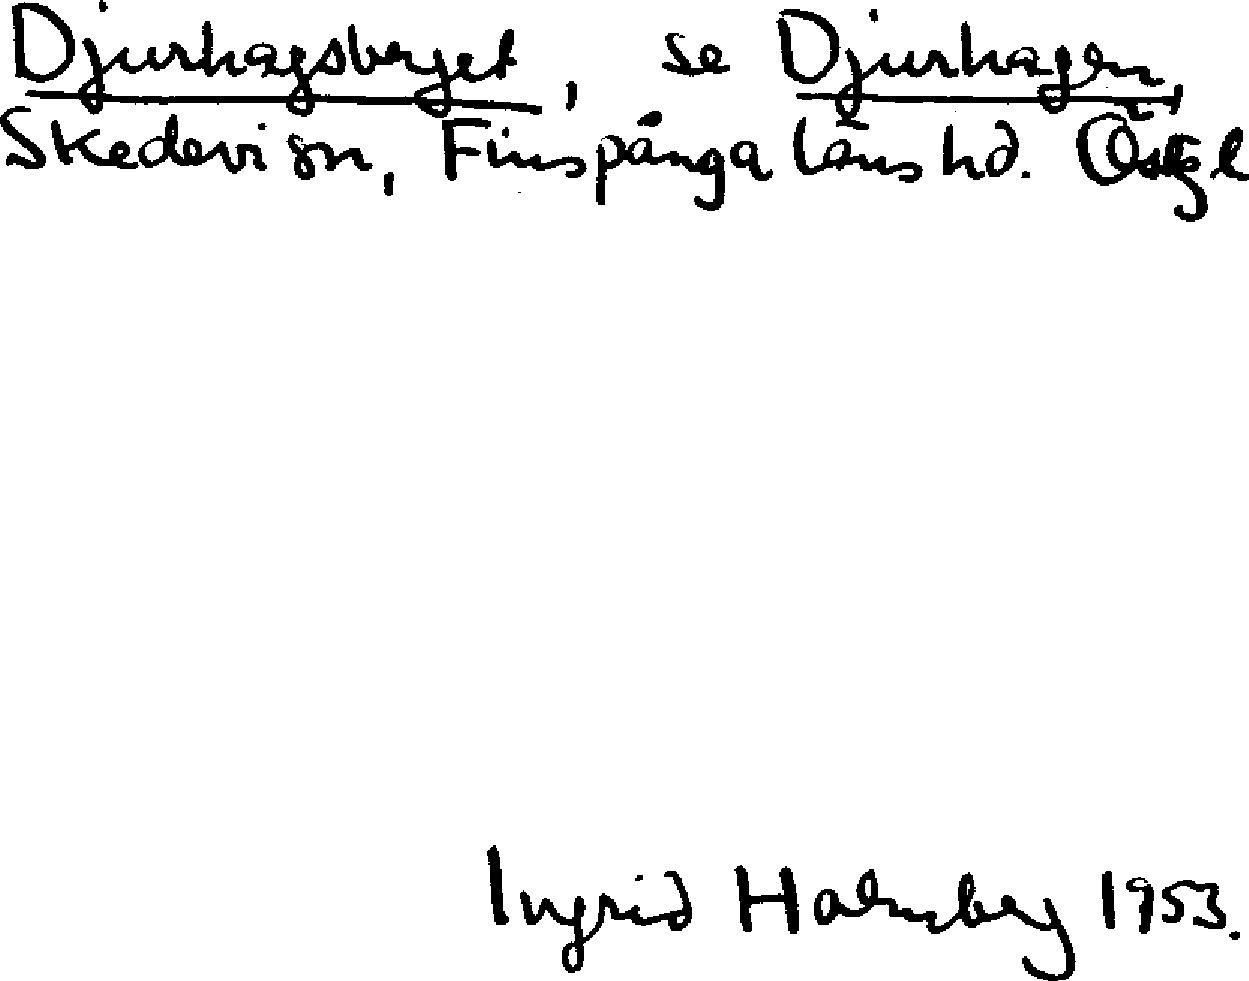 Djurhagsberget, se Djurhagen,
Skedevi sn, Finspånga läns hd. Östgl
Ingrid Holmberg 1953.